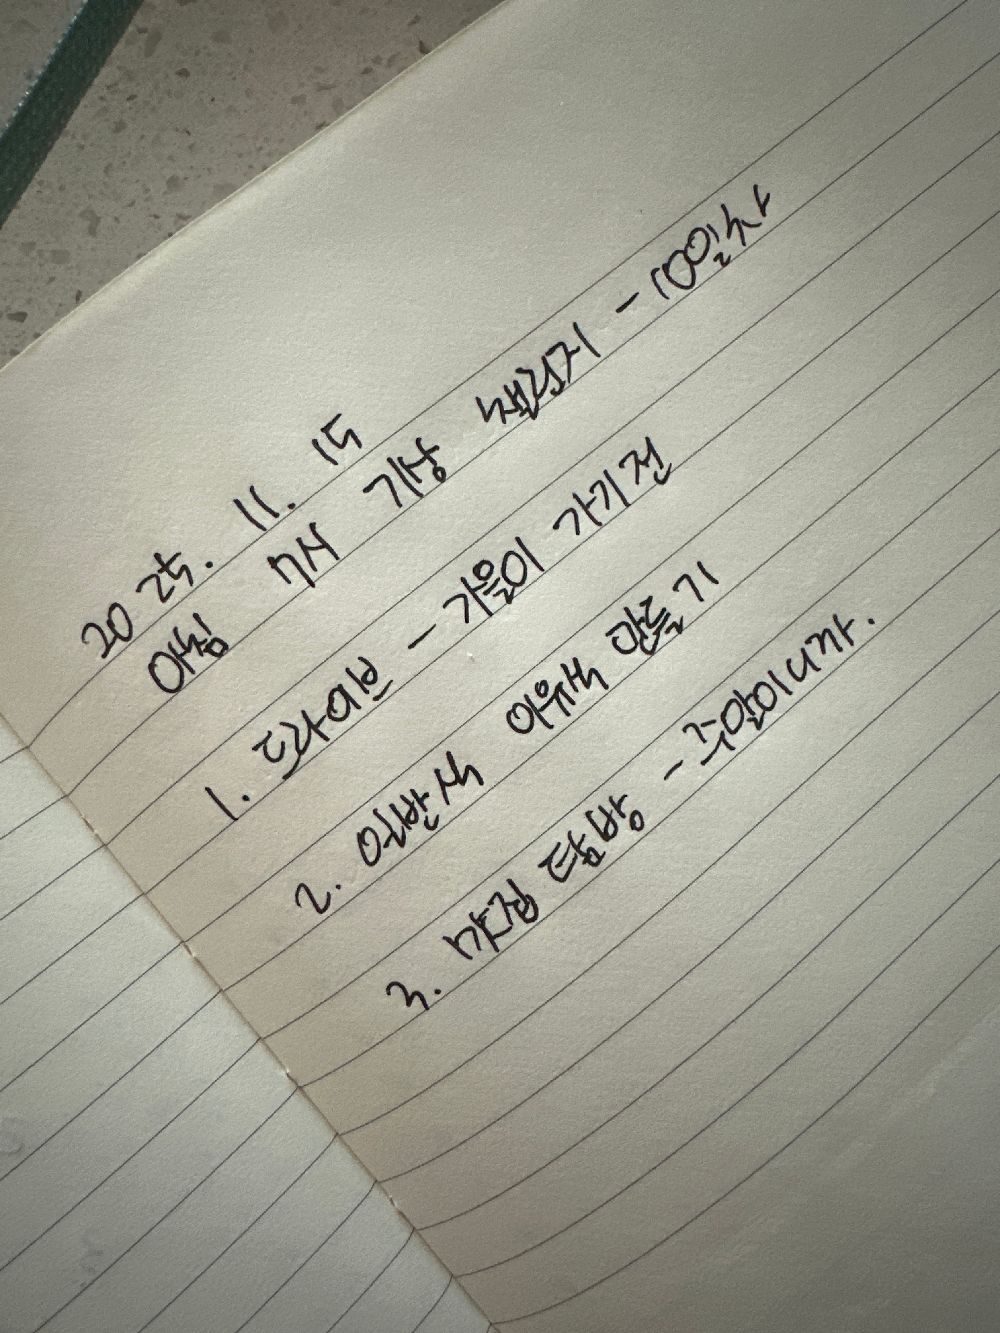 2025. 11. 15
아침 7시 기상 챌린지 - 100일차
1. 드라이브 - 가을이 가기 전
2. 이유식 만들기
3. 맛집 탐방 - 주말이니까.